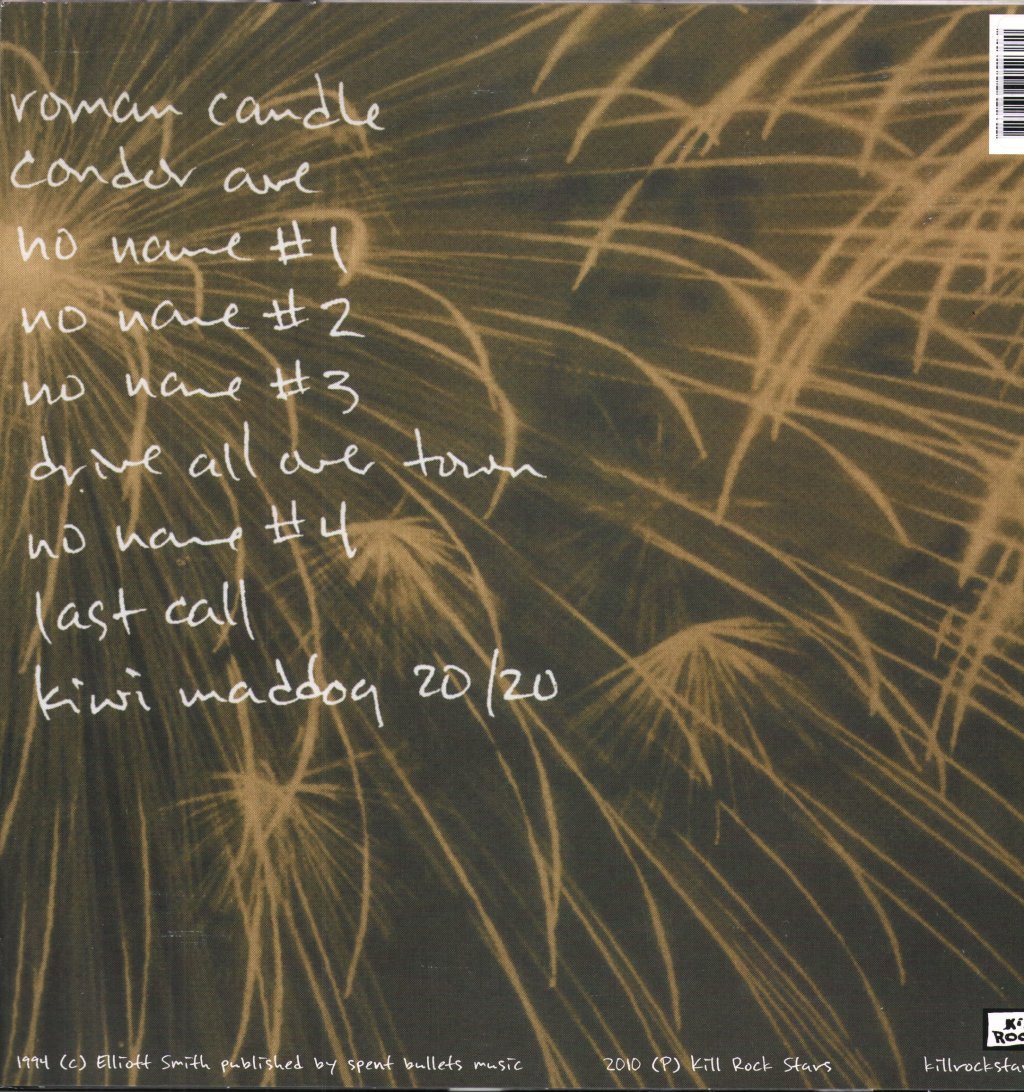 roman candle
condor ave
no name #1
no name #2
no name #3
drive all over town
no name #4
last call
kiwi maddog 20/20
Ki
Roc
1994 (c) Elliott Smith published by spent bullets music
2010 (P) Kill Rock Stars
killrocksta